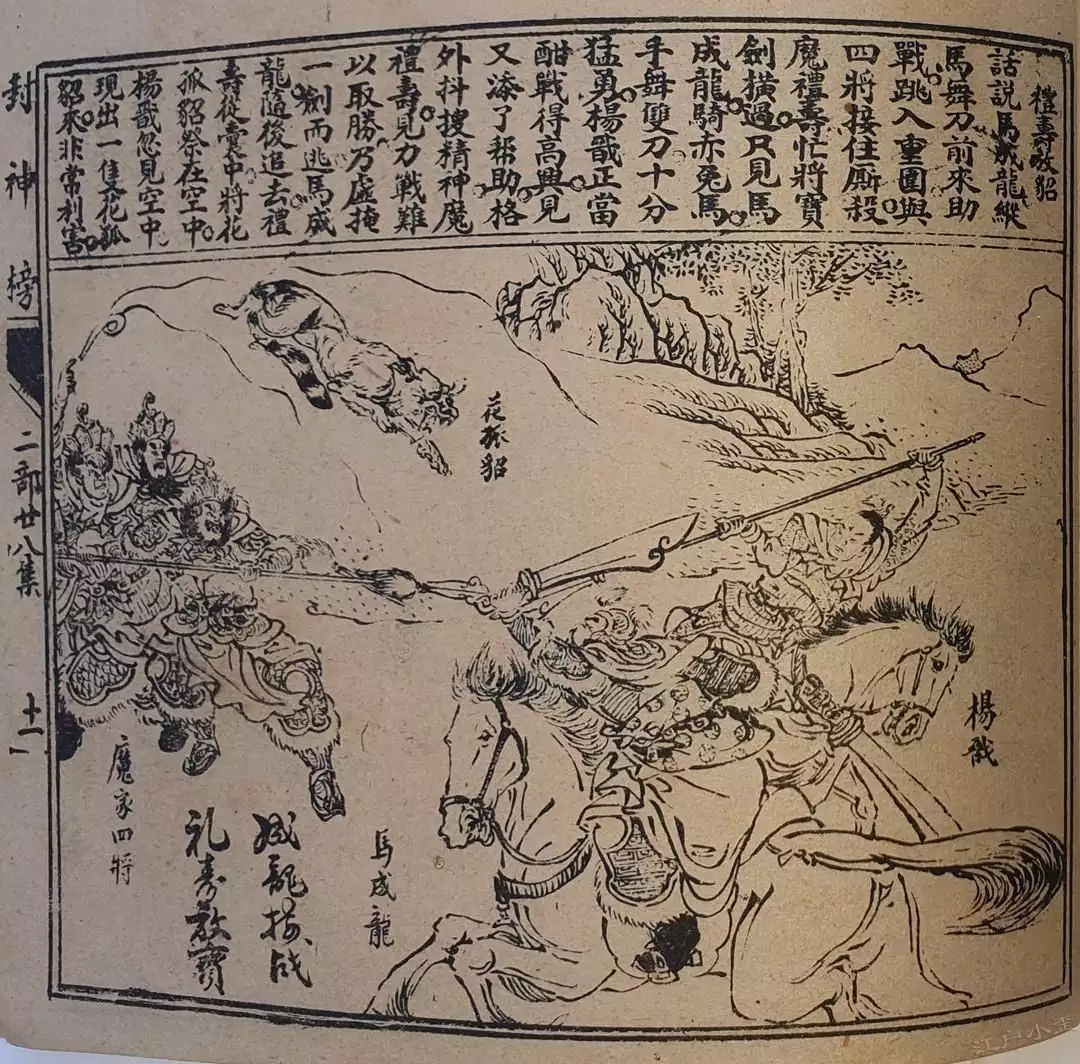 禮壽放貂
話說馬成龍縱
馬舞刀前來助
戰跳入重圍與
四將接住厮殺
魔禮壽忙將寶
劍橫過只見馬
成龍騎亦兔馬
手舞雙刀十分
猛勇楊戩正當
酣戰得高興見
又添了帮助格
外抖搜精神魔
禮壽見力戰難
以取勝乃虛掩
一劍而逃馬成
龍隨後追去禮
壽從囊中將花
孤貂祭在空中
楊戩忽見空中
現出一隻花狐
貂來非常利害
花狐貂
楊戩
馬成龍
成龍
礼寿放寶
魔家四將
封神榜
二部廿八集
十一